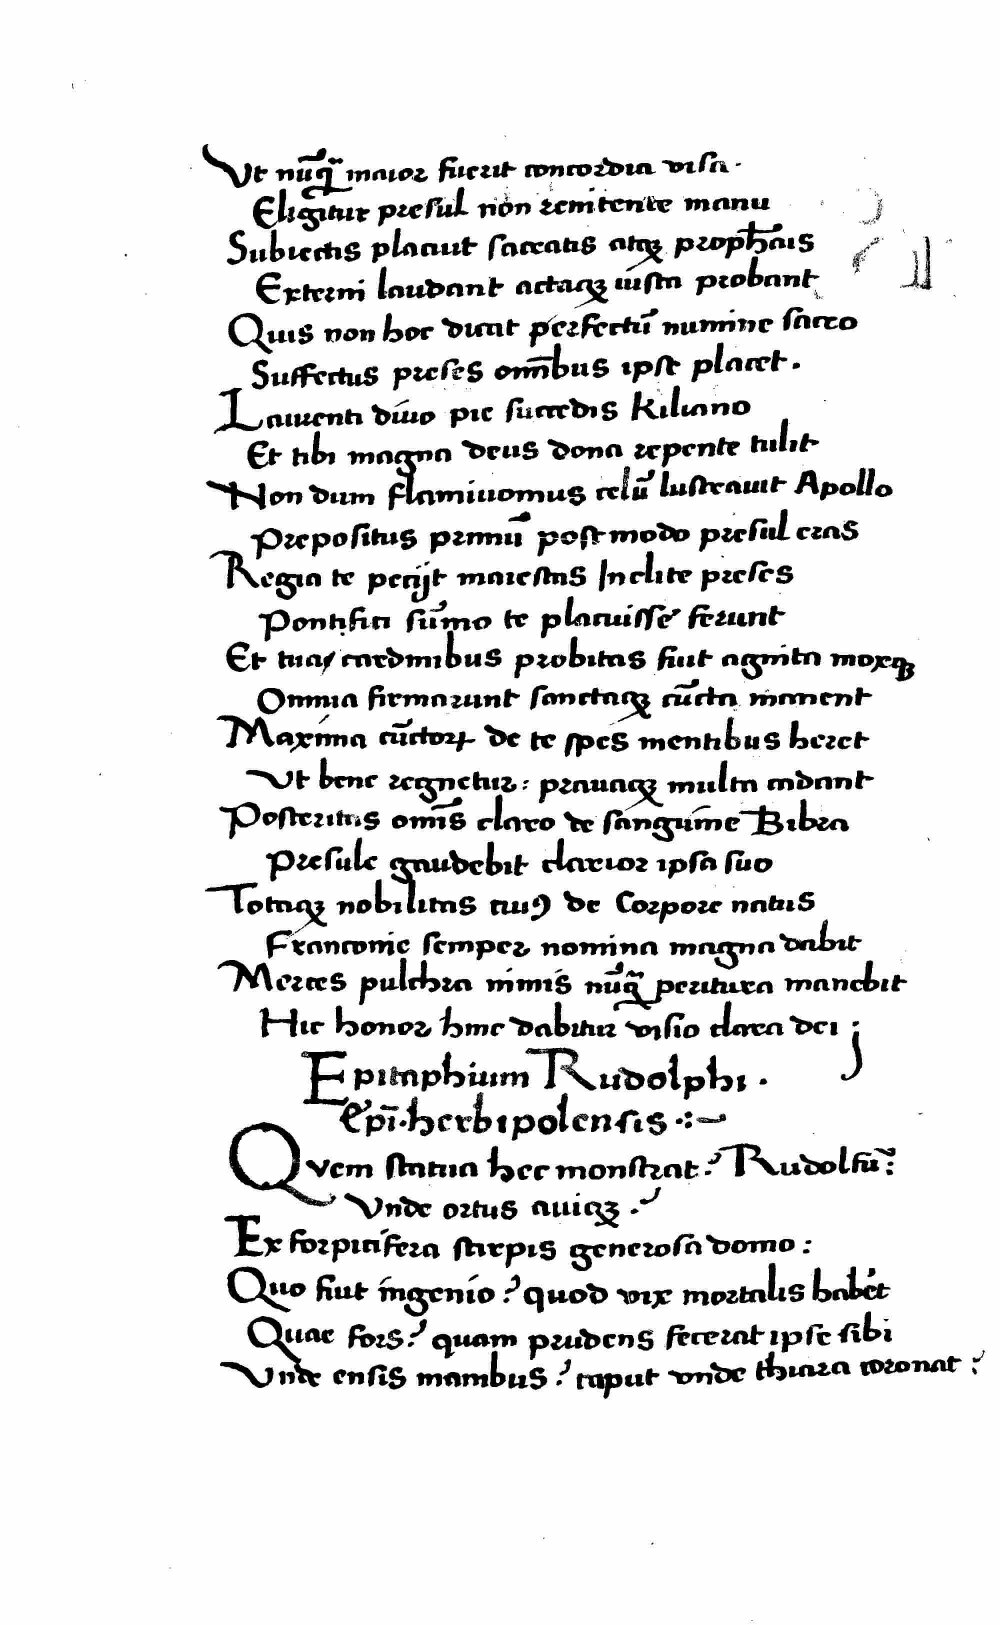 Vt nūq̄ maior fuerit concordia visa.
Eligitur presul non renitente manu
Subiectis placuit sacratis atqꝫ prophanis
Externi laudant actaqꝫ iusta probant
Quis non hoc dicat perfectū numine sacro
Suffectus preses om̄ibus ipse placet.
Laurenti diuo pie succedis Kiliano
Et tibi magna deus dona repente tulit
Non dum flamiuomus celū lustrauit Apollo
Prepositus primū post modo presul eras
Regia te petijt maiestas Inclite preses
Pontifici sūmo te placuisse ferunt
Et tua cardinibus probitas fuit agnita moxqꝫ
Omnia firmarunt sanctaqꝫ cūcta manent
Maxima cūctoꝝ de te spes mentibus heret
Vt bene regnetur: prauaqꝫ multa cadant
Posteritas om̄is claro de sanguine Bibra
Presule gaudebit clarior ipsa suo
Totaqꝫ nobilitas cuiꝰ de Corpore natus
Franconie semper nomina magna dabit
Merces pulchra nimis nūq̄ peritura manebit
Hic honor hinc dabitur visio clara dei ;
Epitaphium Rudolphi.
Ep̄i. herbipolensis .:~
Quem statua hec monstrat? Rudolfū:
Vnde ortus auiqꝫ.?
Ex forpicifera stirpis generosa domo:
Quo fuit ingenio? quod vix mortalis habet
Quae fors? quam prudens fecerat ipse sibi
Vnde ensis manibus? caput vnde thiara coronat?